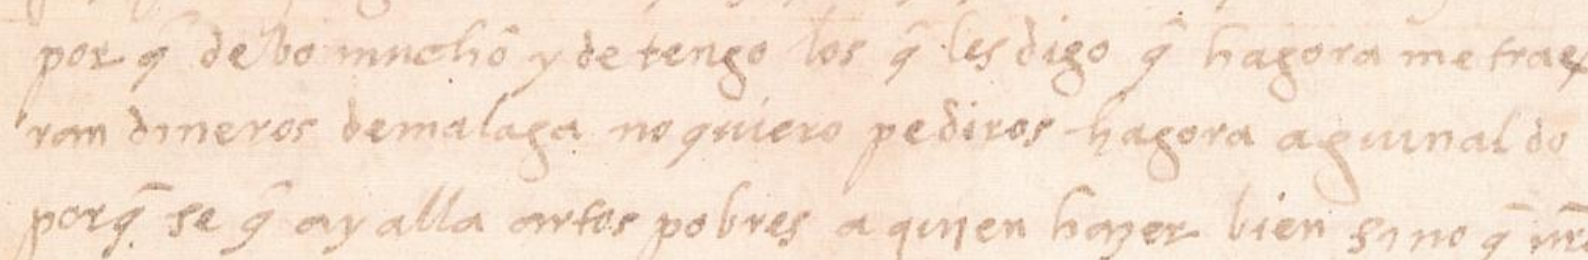 por q̃ debo mucho y detengo los q̃ les digo q̃ hagora me trae
ran dineros de malaga no quiero pediros hagora aguinaldo
porq̃ se q̃ ay alla artos pobres a quien hazer bien sino q̃